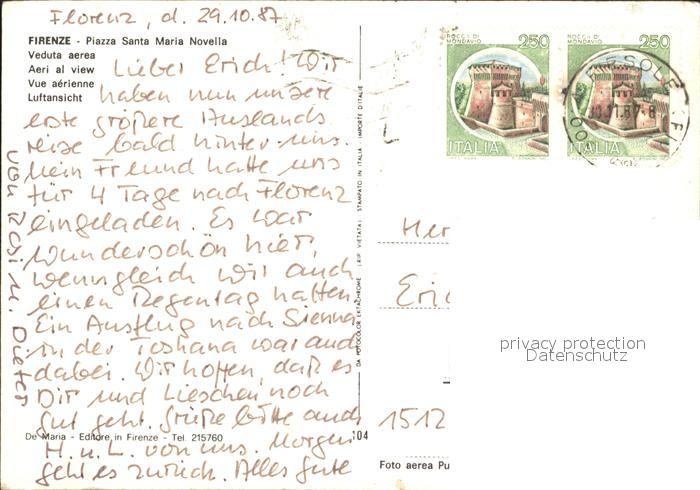 Florenz, d. 29.10.87
FIRENZE - Piazza Santa Maria Novella
Veduta aerea
Aeri al view
Vue aérienne
Luftansicht
Lieber Erich! Wir
haben nun unsere
erste größere Auslands
reise bald hinter uns.
Mein Freund hatte uns
für 4 Tage nach Florenz
eingeladen. Es war
wunderschön hier,
wenngleich wir auch
einen Regentag hatten.
Ein Ausflug nach Sienna
in der Toskana war auch
dabei. Wir hoffen, daß es
Dir und Lieschen noch
gut geht. Grüße bitte auch
H. u. L. von uns. Morgen
geht es zurück. Alles Gute
von Rosi u. Dieter
De Maria - Editore in Firenze - Tel. 215760
104
DA FOTOCOLOR EKTACHROME (RIP. VIETATA) STAMPATO IN ITALIA IMPORTE D'ITALIE
ROCCA DI
MONDAVIO
250
ITALIA
ROCCA DI
MONDAVIO
250
ITALIA
Her
Eric
1512
Foto aerea Pu
privacy protection
Datenschutz